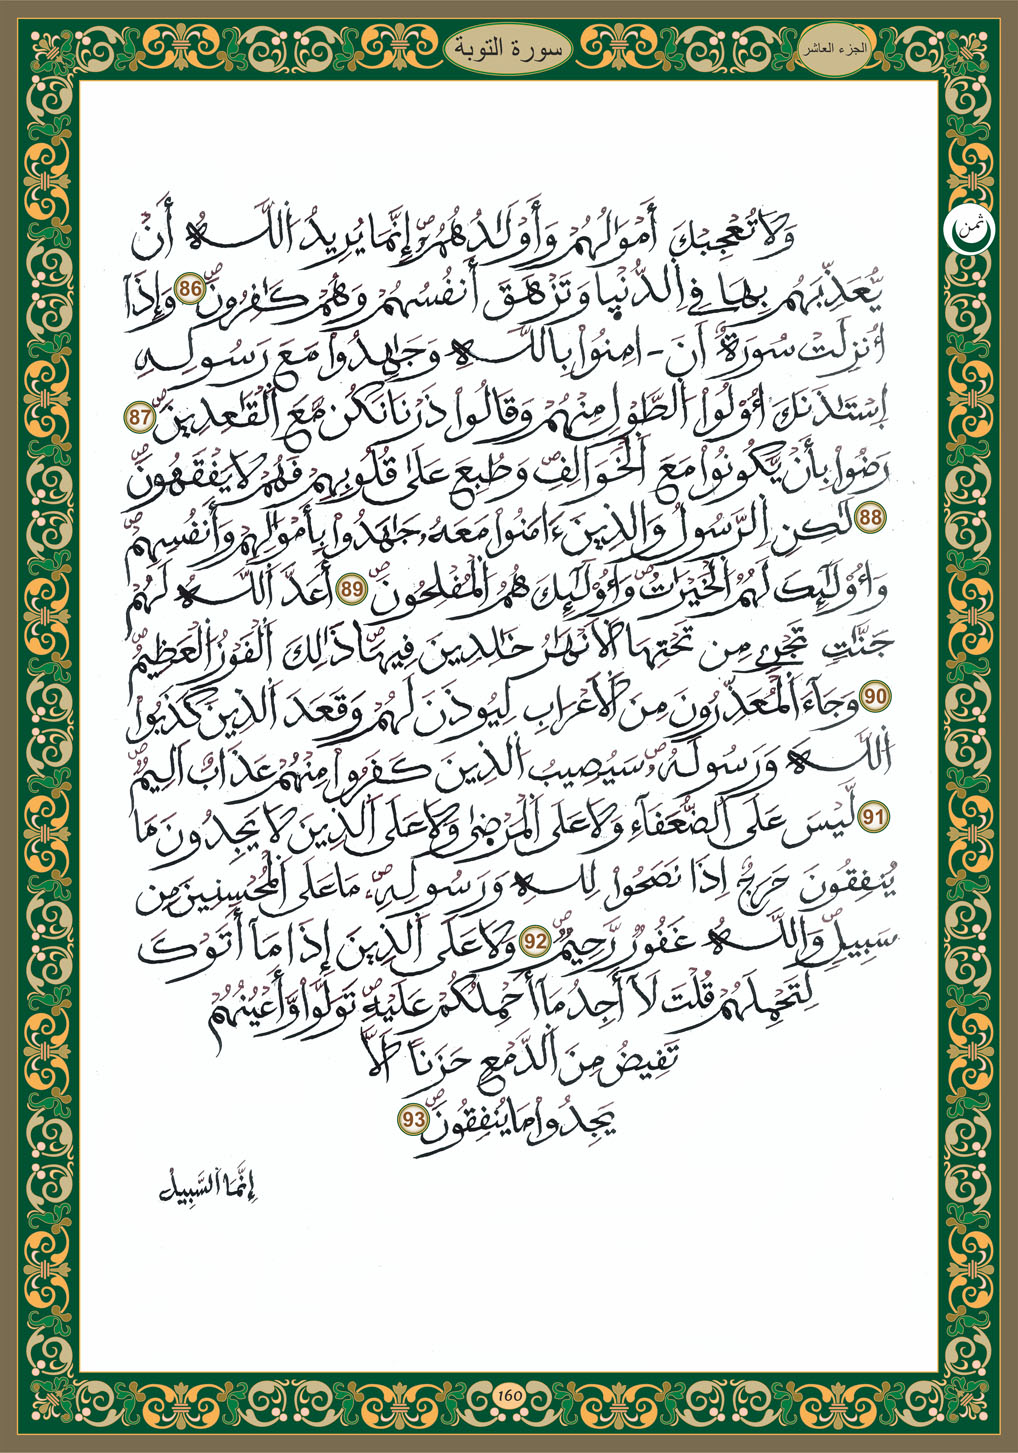 الجزء العاشر
سورة التوبة
ثمن
وَلَا تُعْجِبْكَ أَمْوَٰلُهُمْ وَأَوْلَٰدُهُمُۥٓ إِنَّمَا يُرِيدُ اُ۬للَّهُ أَنْ
يُّعَذِّبَهُم بِهَا فِے اِ۬لدُّنْيٖا وَتَزْهَقَ أَنفُسُهُمْ وَهُمْ كَٰفِرُونَۖ 86 وَإِذَآ
أُنزِلَتْ سُورَةٌ أَنَ ـ امِنُواْ بِاللَّهِ وَجَٰهِدُواْ مَعَ رَسُولِهِ
اِ۪سْتَـٰٔذَنَكَ أُوْلُواْ اُ۬لطَّوْلِ مِنْهُمْ وَقَالُواْ ذَرْنَا نَكُن مَّعَ اَ۬لْقَٰعِدِينَۖ 87
رَضُواْ بِأَنْ يَّكُونُواْ مَعَ اَ۬لْخَوَالِفِۖ وَطُبِعَ عَلَىٰ قُلُوبِهِمْ فَهُمْ لَا يَفْقَهُونَۖ
88 لَٰكِنِ اِ۬لرَّسُولُ وَالذِينَ ءَامَنُواْ مَعَهُۥ جَٰهَدُواْ بِأَمْوَٰلِهِمْ وَأَنفُسِهِمْۖ
وَأُوْلَٰٓئِكَ لَهُمُ اُ۬لْخَيْرَٰتُۖ وَأُوْلَٰٓئِكَ هُمُ اُ۬لْمُفْلِحُونَۖ 89 أَعَدَّ اَ۬للَّهُ لَهُمْ
جَنَّٰتٖ تَجْرِے مِن تَحْتِهَا اَ۬لْأَنْهَٰرُ خَٰلِدِينَ فِيهَاۖ ذَٰلِكَ اَ۬لْفَوْزُ اُ۬لْعَظِيمُۖ
90 وَجَآءَ اَ۬لْمُعَذِّرُونَ مِنَ اَ۬لْأَعْرَابِ لِيُوذَنَ لَهُمْ وَقَعَدَ اَ۬لذِينَ كَذَبُواْ
اُ۬للَّهَ وَرَسُولَهُۥۖ سَيُصِيبُ اُ۬لذِينَ كَفَرُواْ مِنْهُمْ عَذَابٌ اَلِيمٌۖ
91 لَّيْسَ عَلَى اَ۬لضُّعَفَآءِ وَلَا عَلَى اَ۬لْمَرْضۭيٰ وَلَا عَلَى اَ۬لذِينَ لَا يَجِدُونَ مَا
يُنفِقُونَ حَرَجٌ اِذَا نَصَحُواْ لِلهِ وَرَسُولِهِۦۖ مَا عَلَى اَ۬لْمُحْسِنِينَ مِن
سَبِيلٖۖ وَاللَّهُ غَفُورٞ رَّحِيمٞۖ 92 وَلَا عَلَى اَ۬لذِينَ إِذَا مَآ أَتَوْكَ
لِتَحْمِلَهُمْ قُلْتَ لَآ أَجِدُ مَآ أَحْمِلُكُمْ عَلَيْهِۖ تَوَلَّواْ وَّأَعْيُنُهُمْ
تَفِيضُ مِنَ اَ۬لدَّمْعِ حَزَناً اَلَّا
يَجِدُواْ مَا يُنفِقُونَۖ 93
إِنَّمَا اَ۬لسَّبِيلُ
160